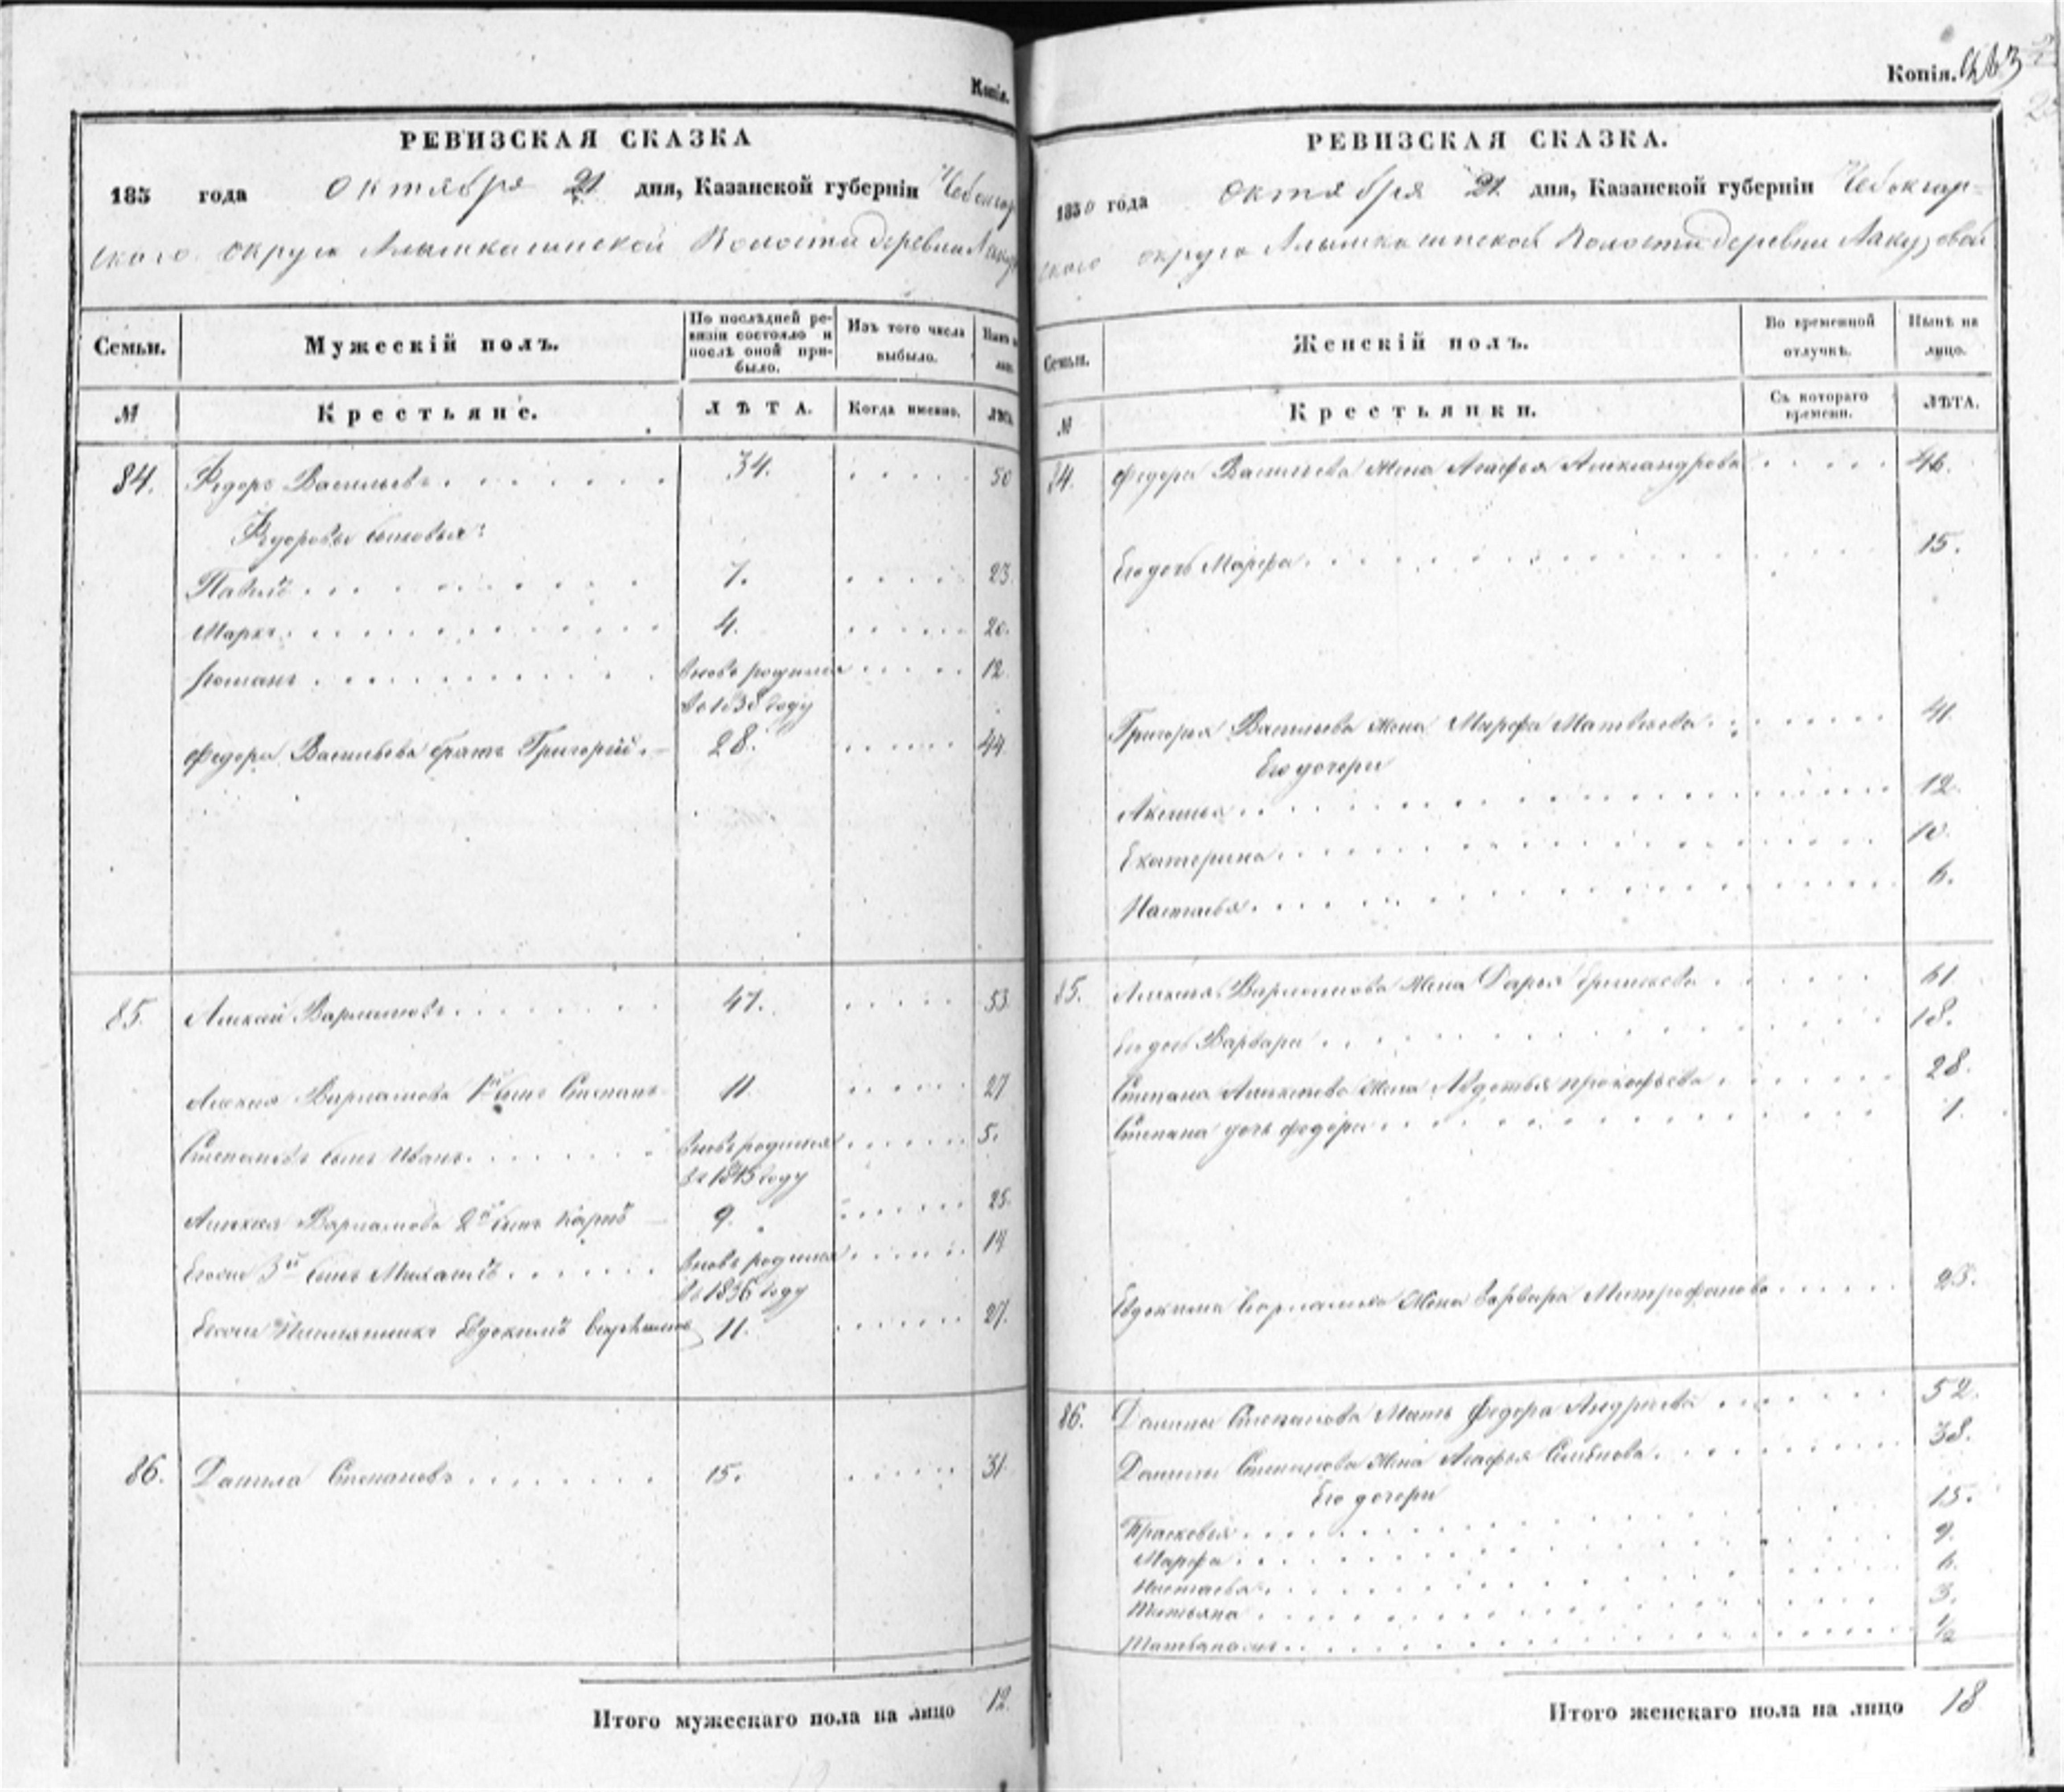 Копія.
РЕВИЗСКАЯ СКАЗКА
185 года Октября 21 дня, Казанской губерніи Чебоксар
скаго округа Алымкасинской Волости деревни
Семьи.
Мужескій полъ.
По послѣдней ре-
визіи состояло и
послѣ оной при-
было.
Изъ того числа
выбыло.
Нынѣ
№
Крестьяне.
ЛѢТА.
Когда именно.
84. Федоръ Васильевъ 34. 50
Федоровы сыновья:
Павелъ 7. 23.
Марко 4. 20.
Романъ вновь родился 12.
въ 1838 году
Федора Васильева братъ Григорій 28. 44.
85. Алексѣй Варламовъ 47. 53
Алексѣя Варламова 1й сынъ Степанъ 11. 27
Степановъ сынъ Иванъ вновь родился 5.
въ 1845 году
Алексѣя Варламова 2й сынъ Карпъ 9. 25.
Его же 3й сынъ Михаилъ вновь родился 14
въ 1836 году
Его же Племянникъ Евдокимъ 11. 27.
86. Данила Степановъ 15. 31
Итого мужескаго пола на лицо 12.
Копія.
РЕВИЗСКАЯ СКАЗКА.
1850 года Октября 21 дня, Казанской губерніи Чебоксар-
скаго округа Алымкасинской Волости деревни Лакузовой
Семьи.
Женскій полъ.
Во временной
отлучкѣ.
Нынѣ на
лицо.
№
Крестьянки.
Съ котораго
времени.
ЛѢТА.
84. Федора Васильева Жена Агафья Александрова 46.
Его дочь Марфа 15.
Григорья Васильева Жена Марфа Матвѣева 41.
Его дочери
Аксинья 12.
Екатерина 10.
Настасья 6.
85. Алексѣя Варламова Жена Дарья 61.
Его дочь Варвара 18.
Степана Алексѣева Жена Авдотья Прокофьева 28.
Степана дочь Федора 1.
Евдокима Жена Варвара Митрофанова 25.
86. Данилы Степанова Мать Федора Андреева 52.
Данилы Степанова Жена Агафья Семенова 38.
Его дочери
Прасковья 15.
Марфа 9.
Настасья 6.
Татьяна 3.
½
Итого женскаго пола на лицо 18